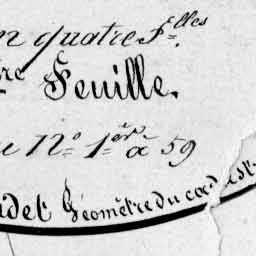 n quatre F.lles
re Feuille.
e N.o 1.er a 59
det Géomètre du cad